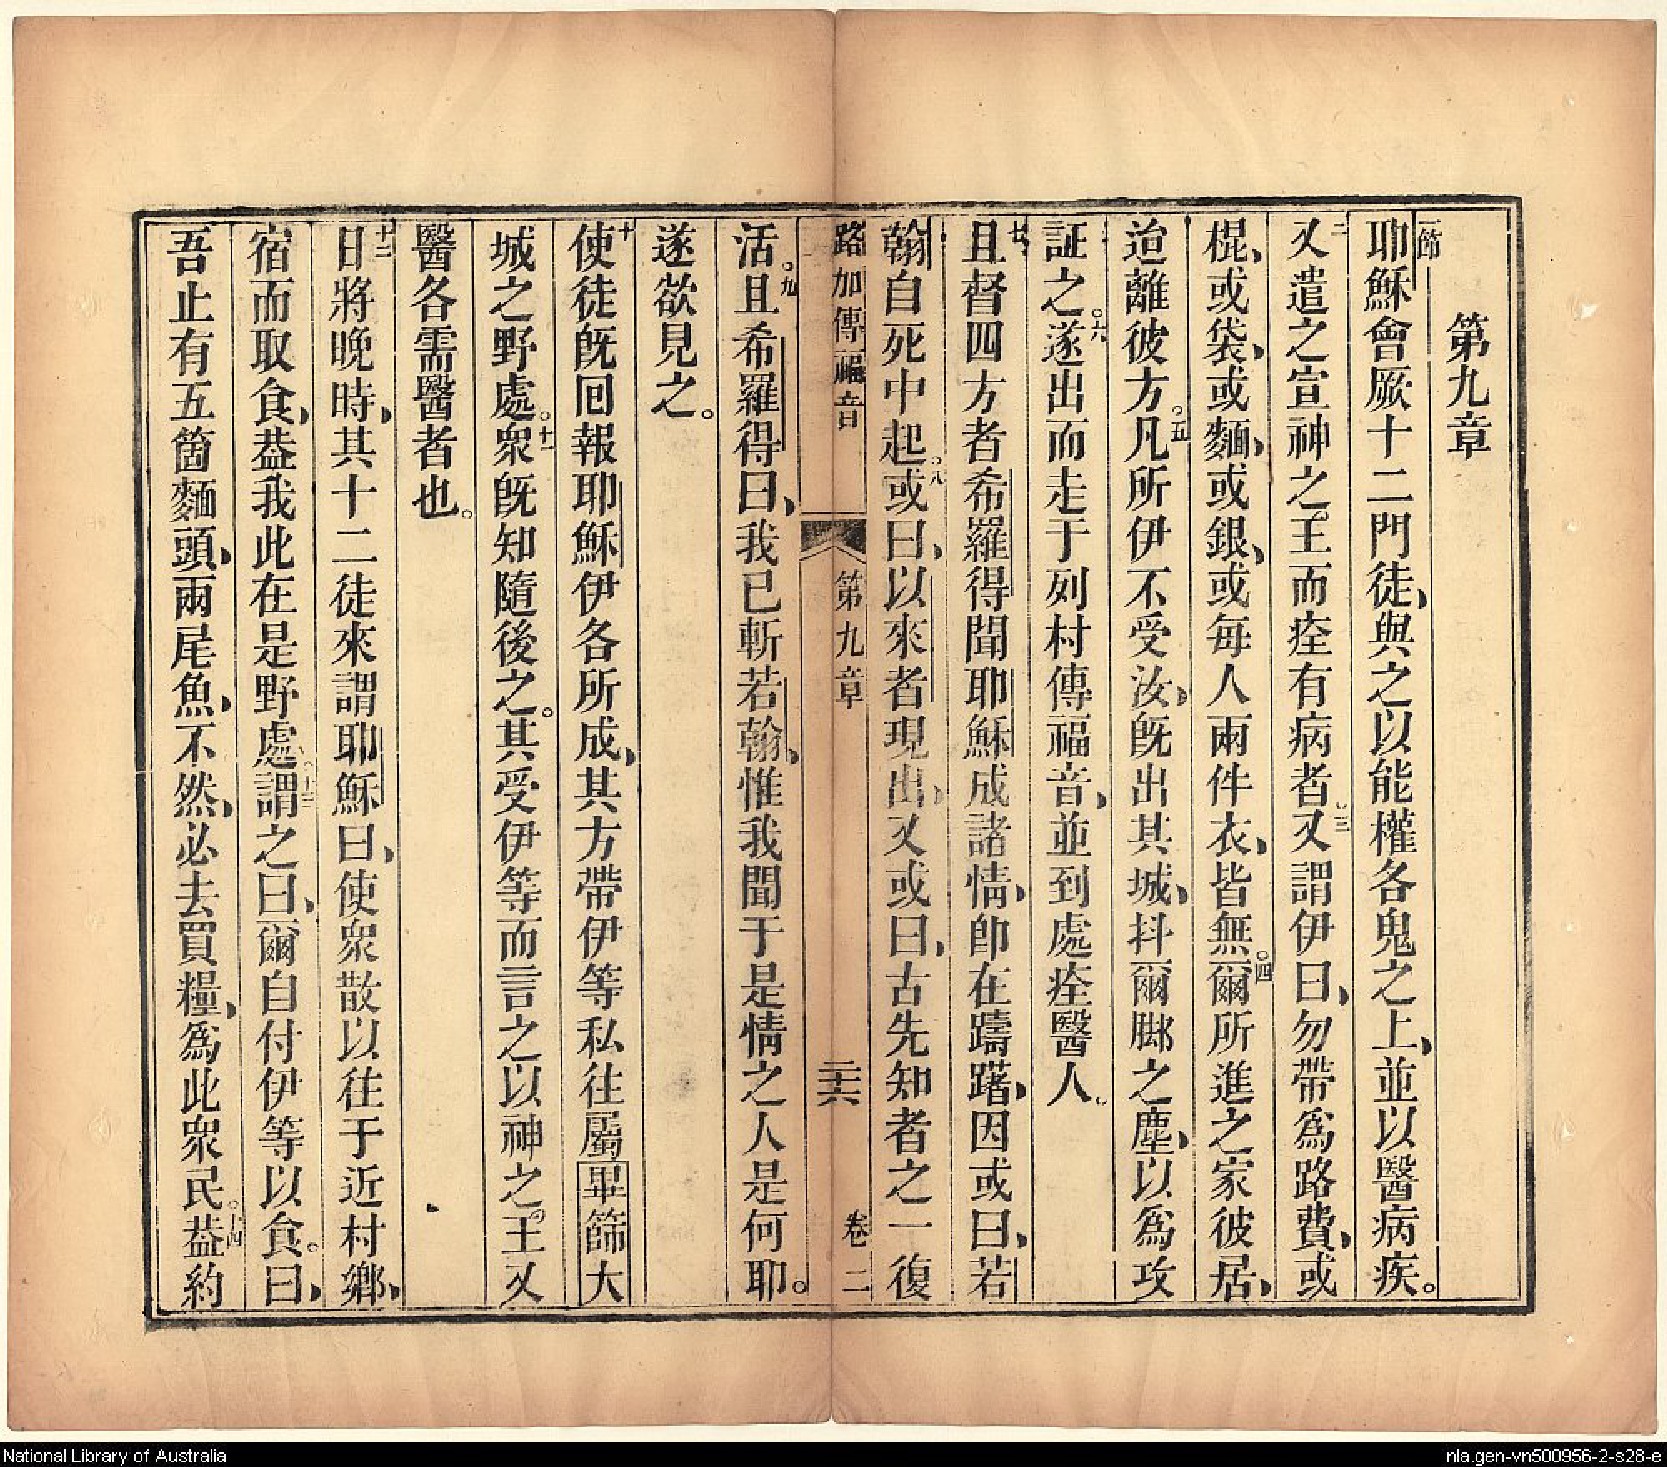 第九章
一節
耶穌會厥十二門徒、與之以能權各鬼之上、並以醫病疾。
二又遣之宣神之王而痊有病者。三又謂伊曰、勿帶爲路費、或
棍、或袋、或麵、或銀、或每人兩件衣、皆無。四爾所進之家彼居、
迨離彼方。五凡所伊不受汝、旣出其城、抖爾脚之塵、以爲攻
証之。六遂出而走于列村傳福音、並到處痊醫人。
七且督四方者希羅得聞耶穌成諸情、卽在躊躇、因或曰、若
翰自死中起。八或曰、以來者現出、又或曰、古先知者之一復
路加傳福音 第九章 二十六 卷二
活。九且希羅得曰、我已斬若翰、惟我聞于是情之人是何耶。
遂欲見之。
十使徒旣回報耶穌伊各所成、其方帶伊等私往屬畢篩大
城之野處。十一衆旣知隨後之。其受伊等而言之以神之王、又
醫各需醫者也。
十二日將晚時、其十二徒來謂耶穌曰、使衆散以往于近村鄉、
宿而取食、葢我此在是野處。十三謂之曰、爾自付伊等以食。曰、
吾止有五箇麵頭、兩尾魚、不然、必去買糧、爲此衆民。十四葢約
National Library of Australia
nla.gen-vn500956-2-s28-e